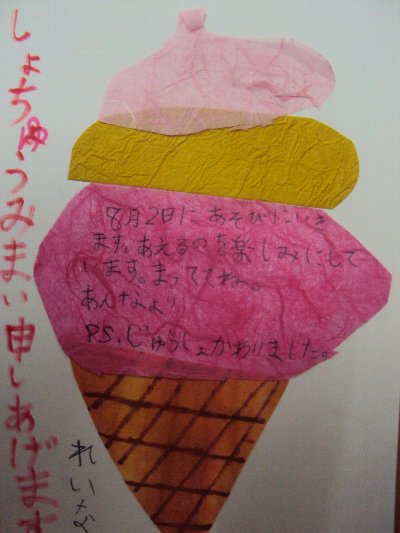 しょちゅうみまい申しあげます
8月2日にあそびにいき
ます。あえるのを楽しみにして
います。まっててね。
あんなより
PS、じゅうしょかわりました。
れいな